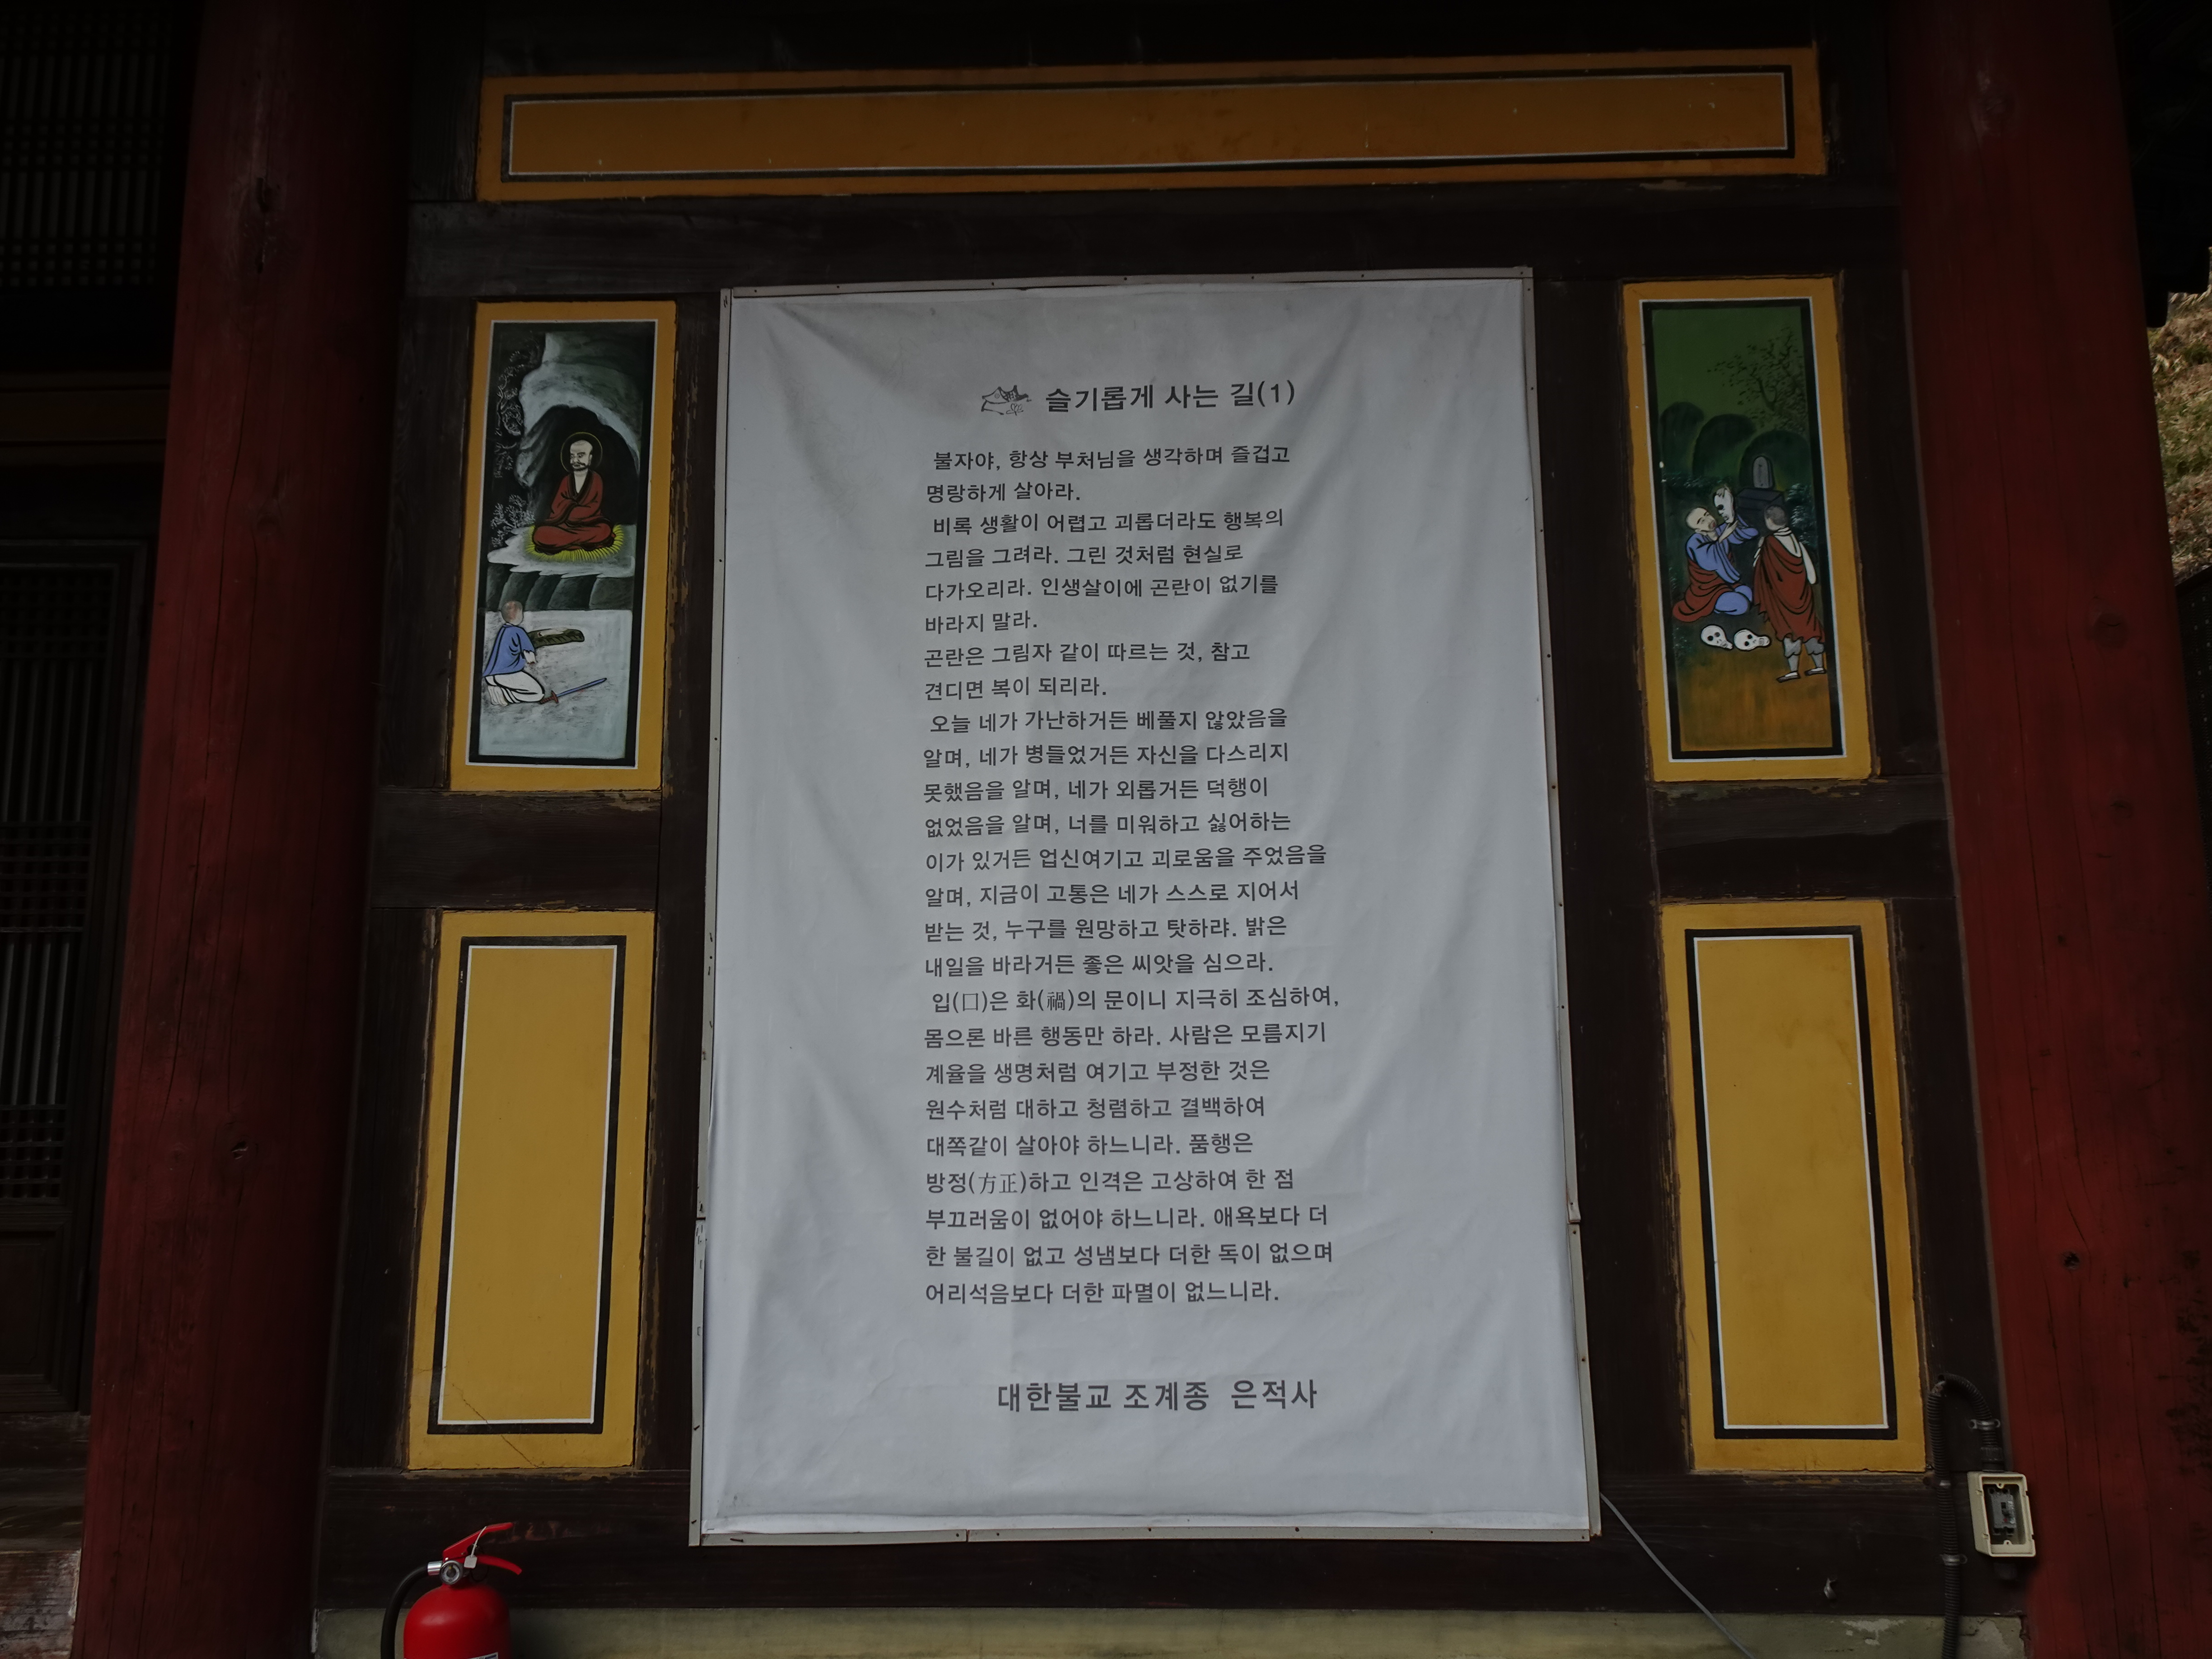 슬기롭게 사는 길(1)
불자야, 항상 부처님을 생각하며 즐겁고
명랑하게 살아라.
비록 생활이 어렵고 괴롭더라도 행복의
그림을 그려라. 그린 것처럼 현실로
다가오리라. 인생살이에 곤란이 없기를
바라지 말라.
곤란은 그림자 같이 따르는 것, 참고
견디면 복이 되리라.
오늘 네가 가난하거든 베풀지 않았음을
알며, 네가 병들었거든 자신을 다스리지
못했음을 알며, 네가 외롭거든 덕행이
없었음을 알며, 너를 미워하고 싫어하는
이가 있거든 업신여기고 괴로움을 주었음을
알며, 지금이 고통은 네가 스스로 지어서
받는 것, 누구를 원망하고 탓하랴. 밝은
내일을 바라거든 좋은 씨앗을 심으라.
입(口)은 화(禍)의 문이니 지극히 조심하여,
몸으론 바른 행동만 하라. 사람은 모름지기
계율을 생명처럼 여기고 부정한 것은
원수처럼 대하고 청렴하고 결백하여
대쪽같이 살아야 하느니라. 품행은
방정(方正)하고 인격은 고상하여 한 점
부끄러움이 없어야 하느니라. 애욕보다 더
한 불길이 없고 성냄보다 더한 독이 없으며
어리석음보다 더한 파멸이 없느니라.
대한불교 조계종 은적사